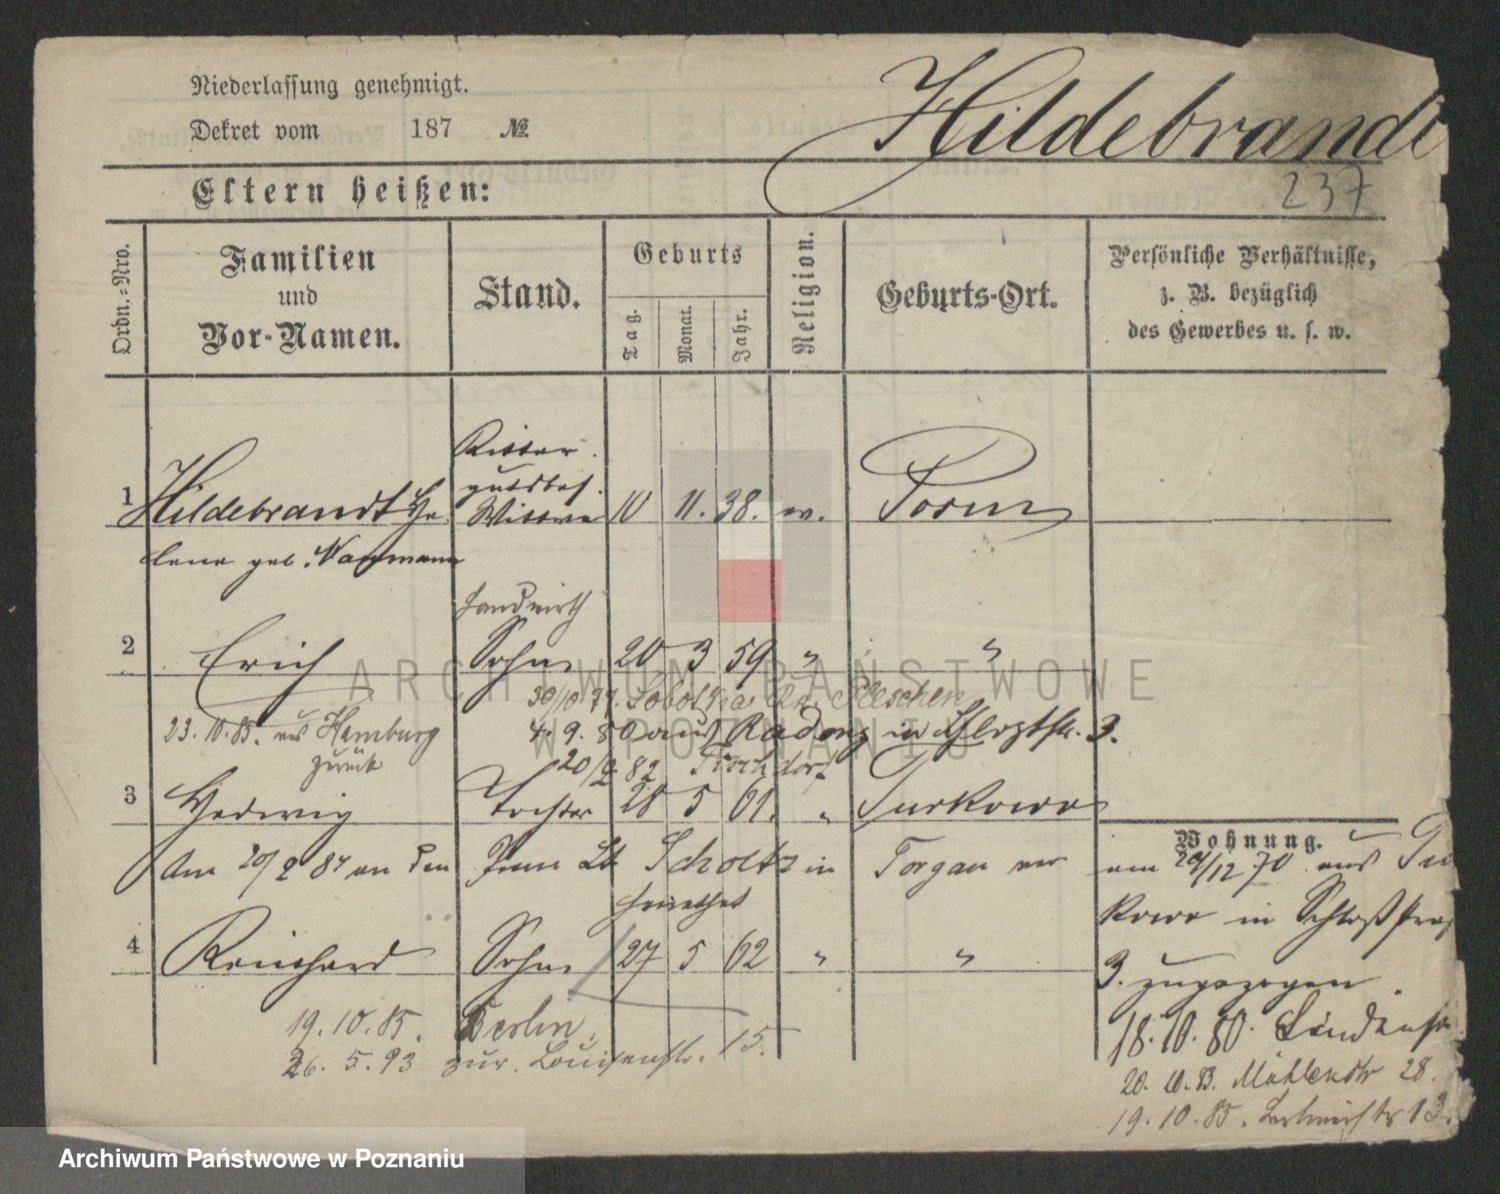 Niederlassung genehmigt.
Dekret vom 187 №
Hildebrandt
237
Eltern heißen:
Ordn.-Nro.
Familien
und
Vor-Namen.
Stand.
Geburts
Tag.
Monat.
Jahr.
Religion.
Geburts-Ort.
Persönliche Verhältnisse,
z. B. bezüglich
des Gewerbes u. s. w.
Ritter
gutsbes.
1 Hildebrandt He Wittwe 10 11. 38. ev. Posen
lene geb. Naumann
Landwirth
2 Erich Sohn 20 3 59 " "
30/10 79. Pleschen
23. 10. 85. aus Hamburg
zurück
4. 9. 80 aus 3.
20/9 82
3 Hedwig Tochter 28 5 61. " Turkowo
Am 20/9 84 an den Prem Lt Scholtz in Torgau ver
heirathet
4 Reinhard Sohn 27 5 62 " "
19. 10. 85. Berlin.
26. 5. 93 zur. Louisenstr. 15.
Wohnung.
am 29/12 70 aus Tur
kowo in
3. zugezogen.
18. 10. 80.
20. 10. 83. Mühlenstr 28.
19. 10. 85. 13.
ARCHIWUM PAŃSTWOWE
W POZNANIU
Archiwum Państwowe w Poznaniu